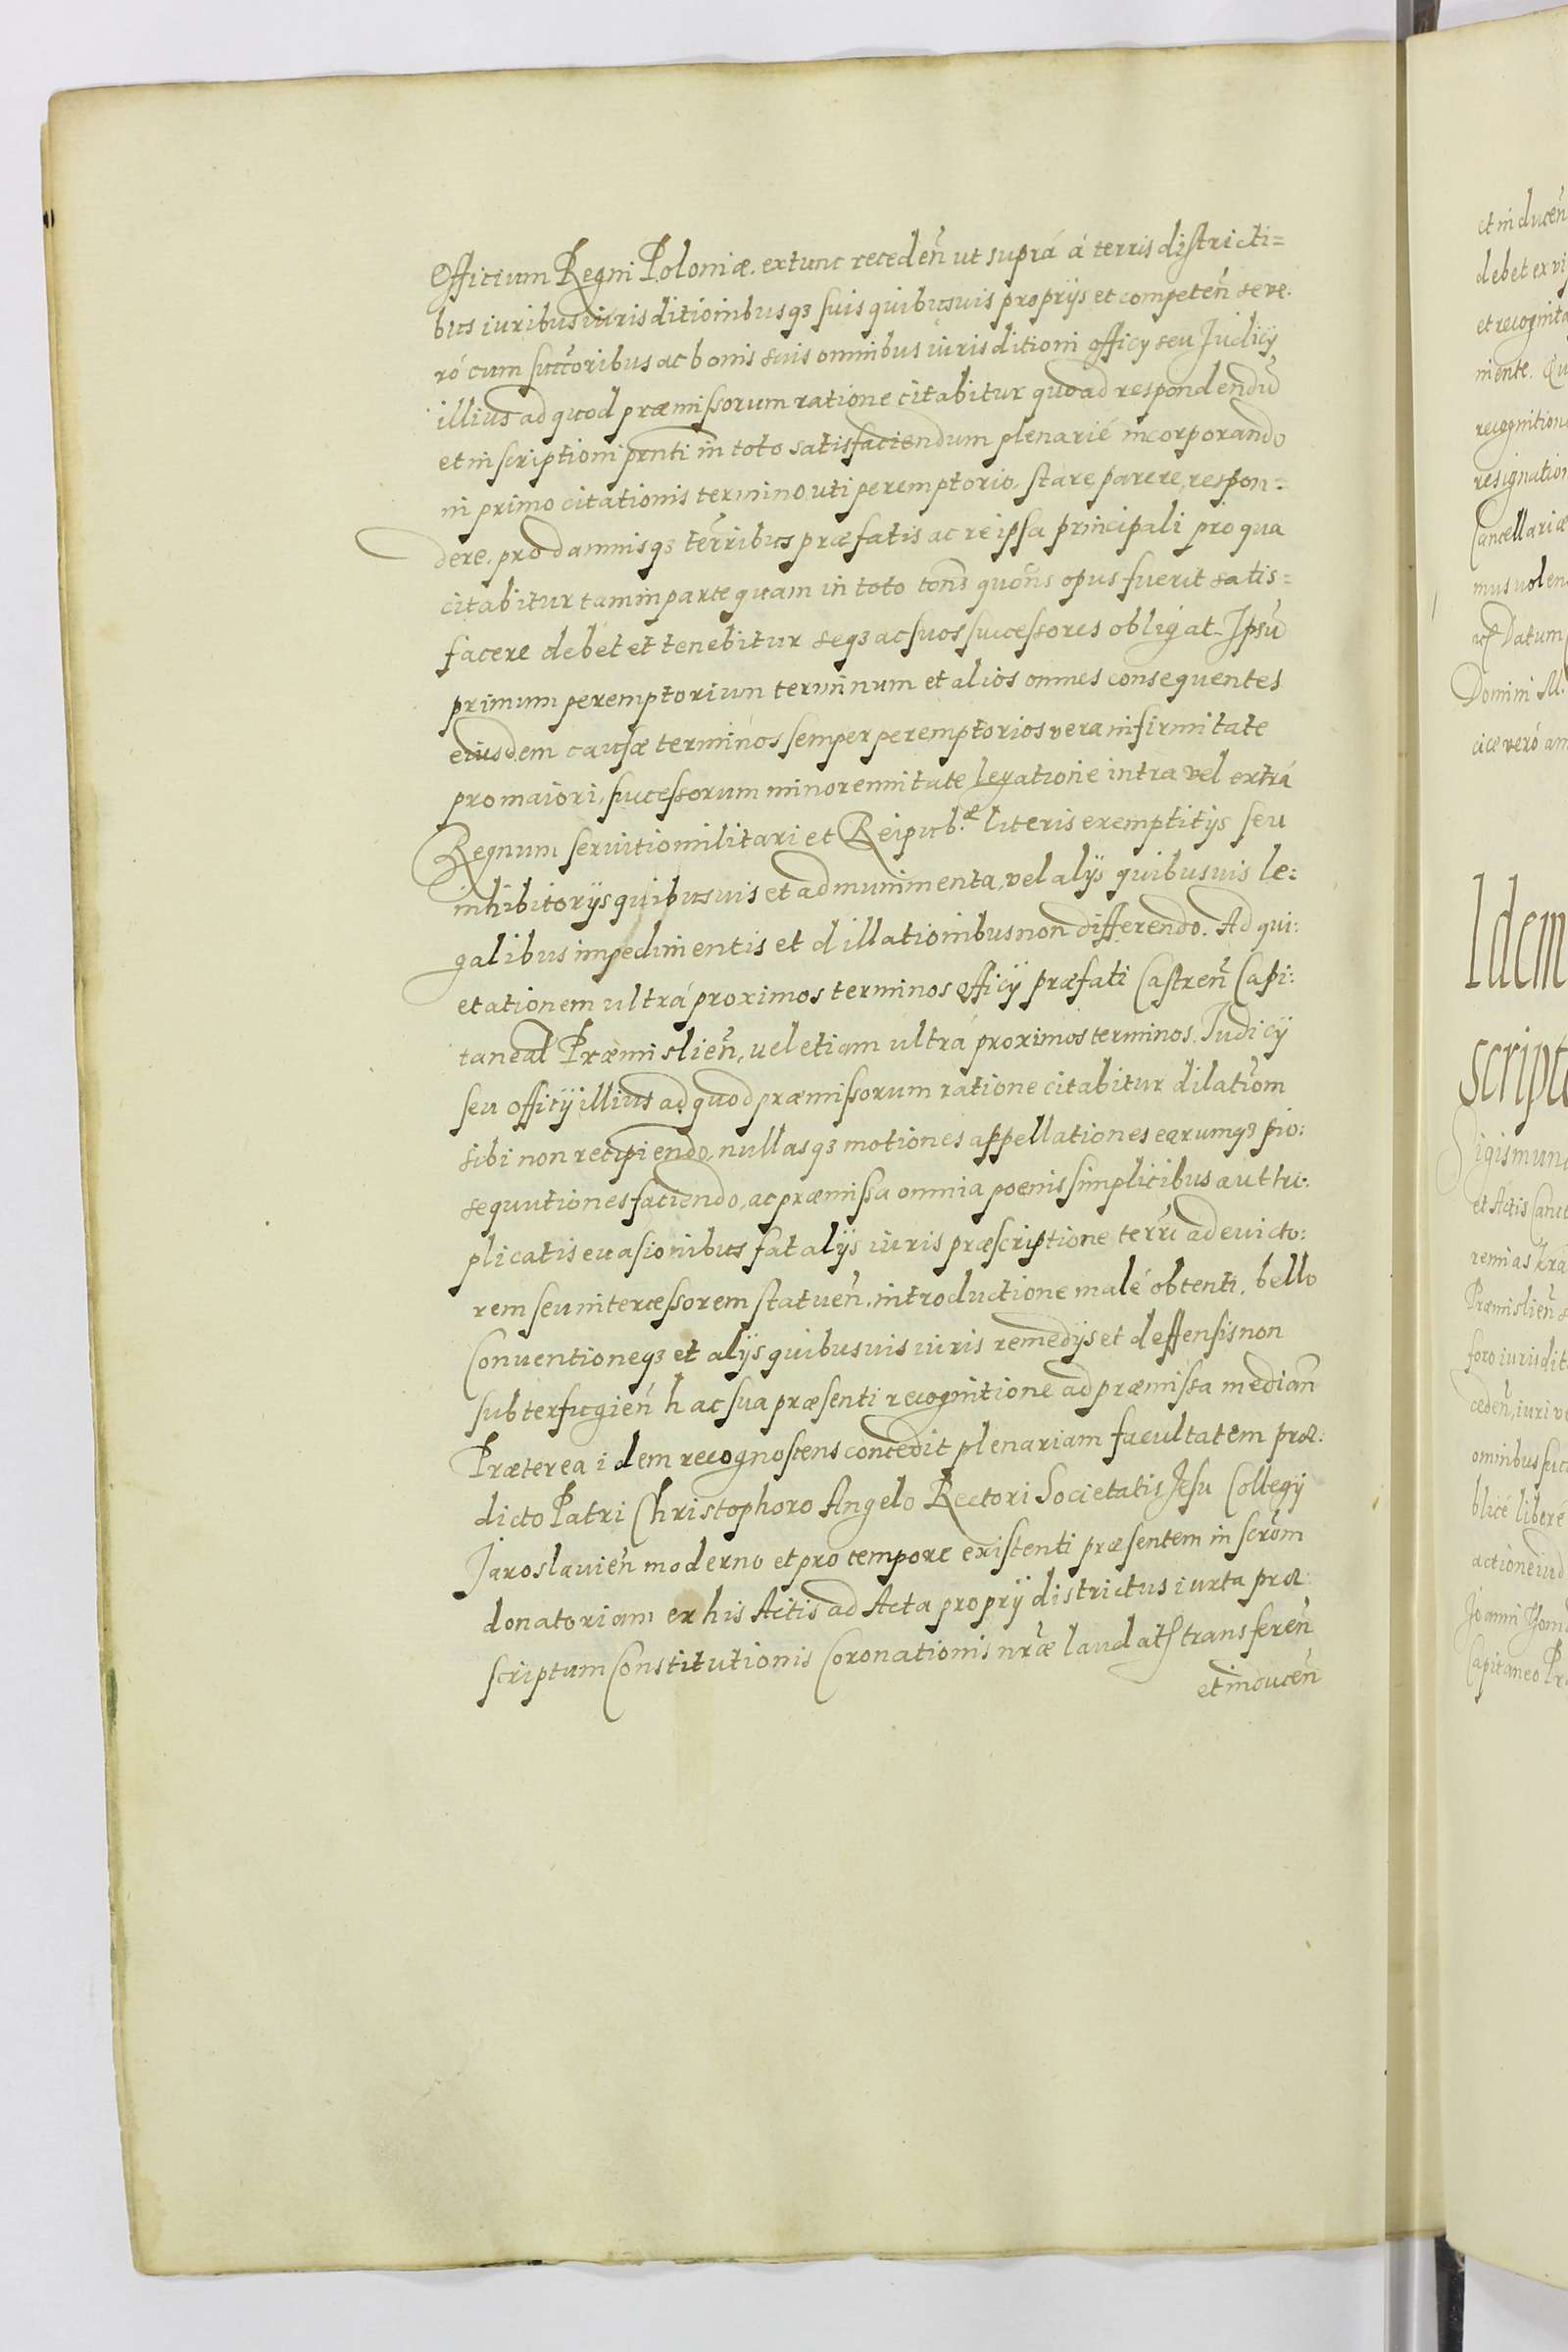 Officium Regni Poloniæ. extunc recedeñ ut suprá á terris districti=
bus iuribus iurisditionibusqȝ suis quibusuis proprijs et competeñ seve:
ró cum succoribus ac bonis suis omnibus iurisditioni officy seu Judicy
illius ad quod præmissorum ratione citabitur quoad respondendũ
et inscriptioni prnti in toto satisfaciendum plenarié incorporando
in primo citationis termino uti peremptorio. stare parere, respon=
dere. pro damnisqȝ terribus præfatis ac re ipsa principali pro qua
citabitur tam in parte quam in toto tons quons opus fuerit satis=
facere debet et tenebitur seqȝ ac suos successores obligat. Ipsũ
primum peremptorium terminum et alios omnes consequentes
eiusdem causæ terminos semper peremptorios vera infirmitate
pro maiori, successorum minorennitate legatione intra vel extrá
Regnum seruitio militari et Reipub.æ literis exemptitijs seu
inhibitorijs quibusuis et ad munimenta, vel alijs quibusuis le:
galibus impedimentis et dillationibus non differendo. Ad qui:
etationem ultrá proximos terminos officij præfati Castreñ Capi:
taneal Præmislieñ, uel etiam ultrá proximos terminos. Judicij
seu officij illius ad quod præmissorum ratione citabitur dilatiom
sibi non recipiendo, nullasqȝ motiones appellationes earumqȝ pro:
sequutiones faciendo, ac præmissa omnia poenis simplicibus aut tri:
plicatis euasionibus fatalijs iuris præscriptione terrĩ ad euicto:
rem seu intercessorem statueñ. introductione malé obtenti, bello
Conuentioneqȝ et alijs quibusuis iuris remedijs et deffensis non
subterfugieñ hac sua præsenti recognitione ad præmissa mediañ
Præterea idem recognoscens concedit plenariam facultatem præ:
dicto Patri Christophoro Angelo Rectori Societatis Jesu Collegij
Jaroslauieñ moderno et pro tempore existenti præsentem inscrõm
donatoriam ex his Actis ad Acta proprij districtus iuxta præ:
scriptum Constitutionis Coronationis nræ laudats transfereñ
et induceñ
et induceñ
debet ex vi
et recognita
niente. Qu
recognition
resignation
Cancellariæ
mus uolen
Datum
Domini M.
ciæ veró am
Idem
scripto
Sigismund
et Actis Canc
remias Kra
Præmislieñ
foro iurisdit
cedeñ, iuri
omnibus succ
blicé liberé
actione iud
Joanni Thom
Capitaneo Pr